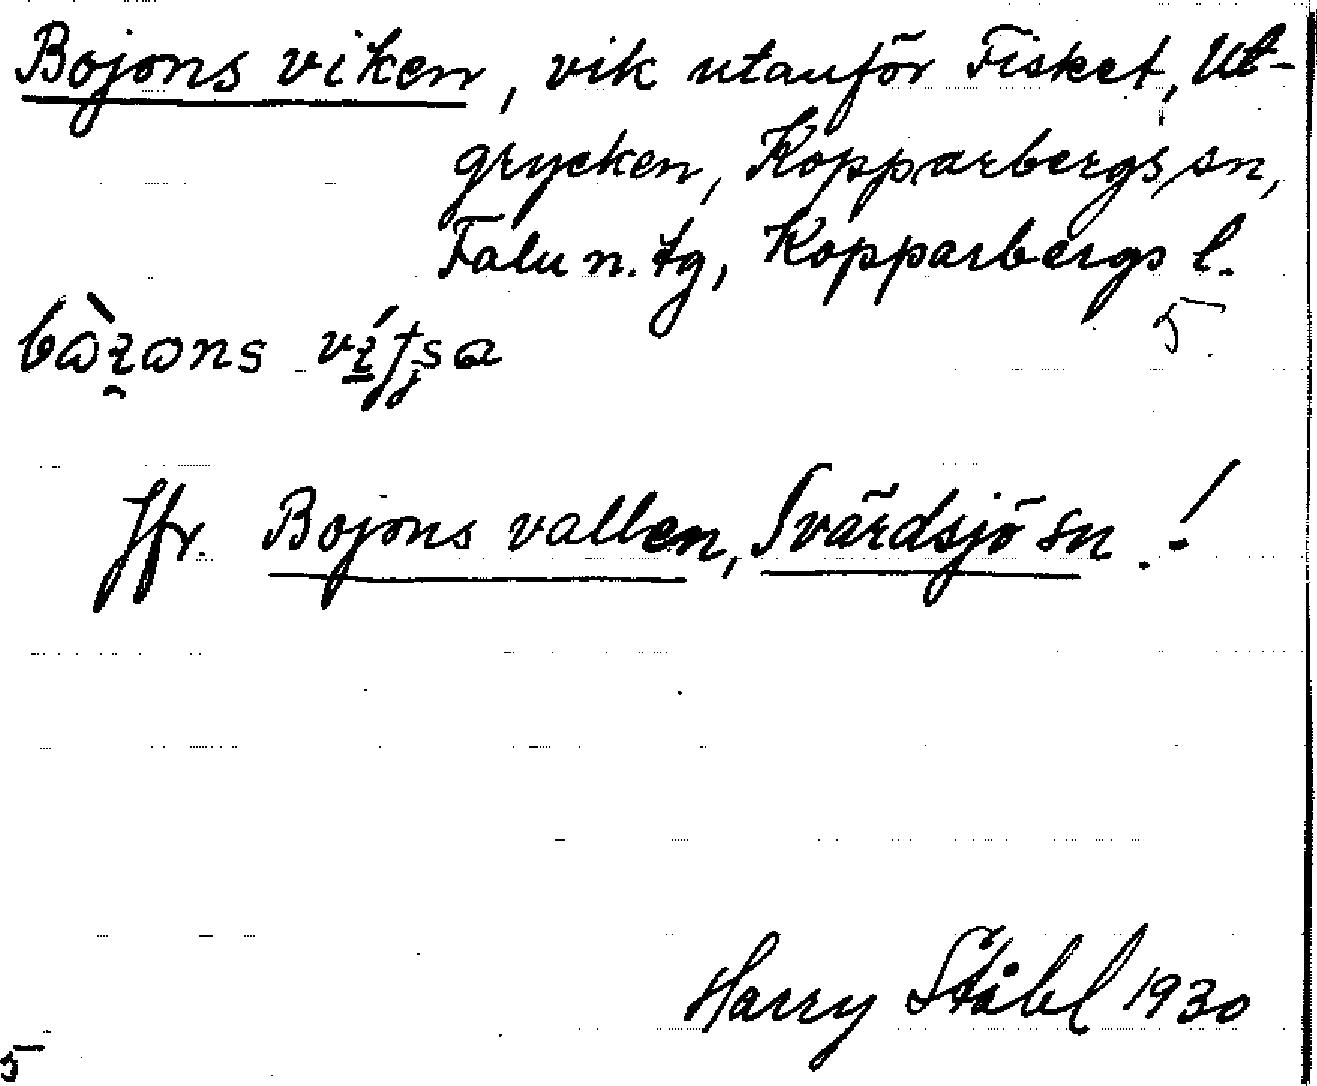 Bojons viken, vik utanför Fisket, Ut-
grycken, Kopparbergs sn,
Falu n. tg, Kopparbergs l.
5
Jfr. Bojons vallen, Svärdsjö sn.!
Harry Ståhl 1930
5